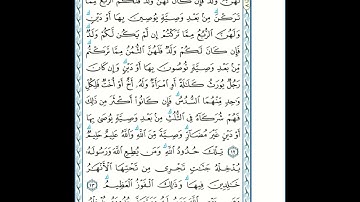 لَهُنَّ وَلَدٌ فَإِن كَانَ لَهُنَّ وَلَدٌ فَلَكُمُ ٱلرُّبُعُ مِمَّا
تَرَكْنَ مِنۢ بَعْدِ وَصِيَّةٍ يُوصِينَ بِهَآ أَوْ دَيْنٍ
وَلَهُنَّ ٱلرُّبُعُ مِمَّا تَرَكْتُمْ إِن لَّمْ يَكُن لَّكُمْ وَلَدٌ
فَإِن كَانَ لَكُمْ وَلَدٌ فَلَهُنَّ ٱلثُّمُنُ مِمَّا تَرَكْتُم
مِّنۢ بَعْدِ وَصِيَّةٍ تُوصُونَ بِهَآ أَوْ دَيْنٍ وَإِن كَانَ
رَجُلٌ يُورَثُ كَلَٰلَةً أَوِ ٱمْرَأَةٌ وَلَهُۥٓ أَخٌ أَوْ أُخْتٌ فَلِكُلِّ
وَٰحِدٍ مِّنْهُمَا ٱلسُّدُسُ فَإِن كَانُوٓا۟ أَكْثَرَ مِن ذَٰلِكَ
فَهُمْ شُرَكَآءُ فِى ٱلثُّلُثِ مِنۢ بَعْدِ وَصِيَّةٍ يُوصَىٰ بِهَآ
أَوْ دَيْنٍ غَيْرَ مُضَآرٍّ وَصِيَّةً مِّنَ ٱللَّهِ وَٱللَّهُ عَلِيمٌ حَلِيمٌ
١٢ تِلْكَ حُدُودُ ٱللَّهِ وَمَن يُطِعِ ٱللَّهَ وَرَسُولَهُۥ
يُدْخِلْهُ جَنَّٰتٍ تَجْرِى مِن تَحْتِهَا ٱلْأَنْهَٰرُ
خَٰلِدِينَ فِيهَا وَذَٰلِكَ ٱلْفَوْزُ ٱلْعَظِيمُ ١٣